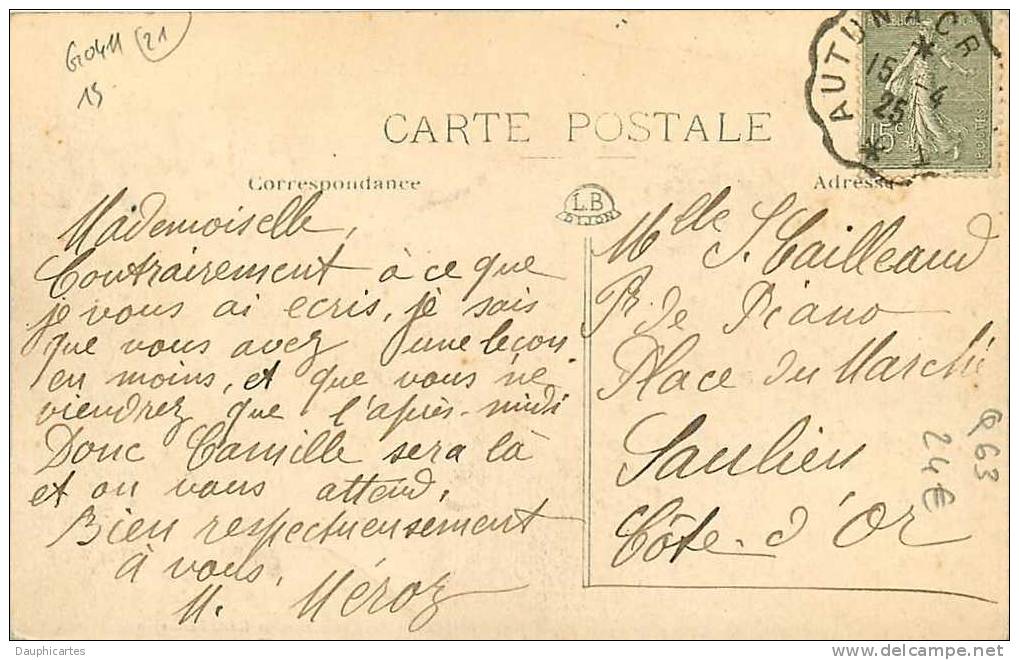 21
15
CARTE POSTALE
Correspondance
Adresse
L.B
DIJON
AUTUN A CR
15 -4
25
15c
Mademoiselle,
Contrairement à ce que
je vous ai ecris, je sais
que vous avez une leçon
en moins, et que vous ne
viendrez que l'après-midi
Donc Camille sera là
et on vous attend,
Bien respectueusement
à vous,
M. Méroz
Mlle S. Cailleaud
P. de Piano
Place du Marché
Saulieu
Côte-d'Or
Q63
24€
Dauphicartes
www.delcampe.net